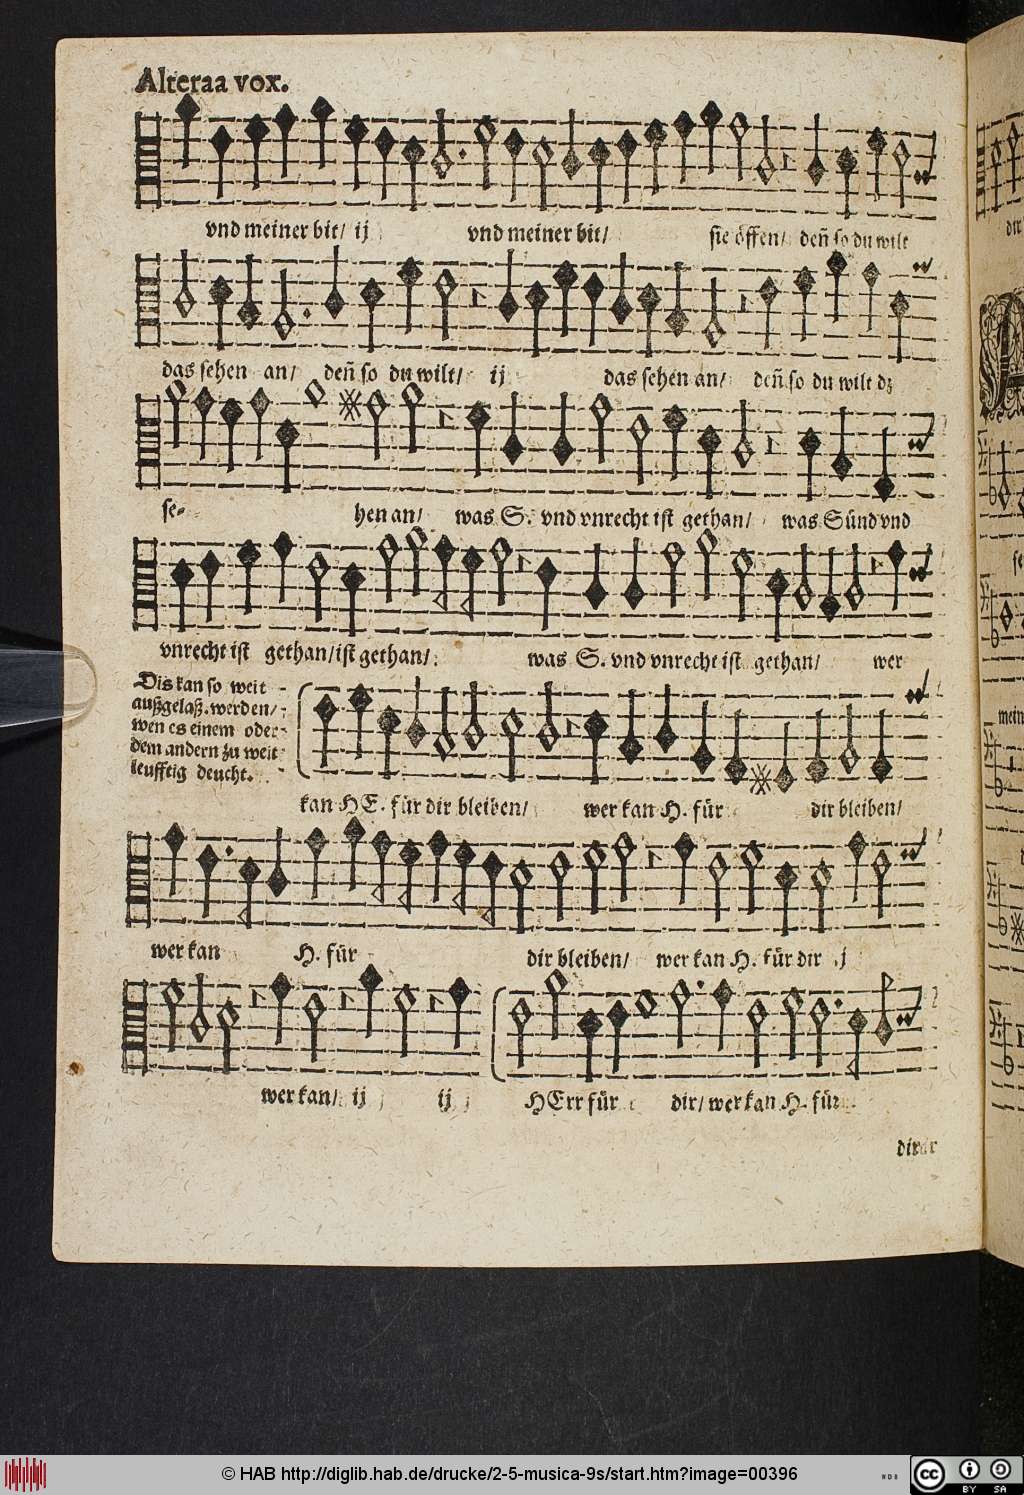 Alteraa vox.
vnd meiner bit/ ij vnd meiner bit/ sie öffen/ deñ so du wilt
das sehen an/ deñ so du wilt/ ij das sehen an/ deñ so du wilt dz
se- hen an/ was S. vnd vnrecht ist gethan/ was Sünd vnd
vnrecht ist gethan/ ist gethan/ was S. vnd vnrecht ist gethan/ wer
Dis kan so weit
außgelaß. werden/
wen es einem oder
dem andern zu weit
leufftig deucht.
kan HE. für dir bleiben/ wer kan H. für dir bleiben/
wer kan H. für dir bleiben/ wer kan H. für dir ij
wer kan/ ij ij HErr für dir/ wer kan H. für
dir
© HAB http://diglib.hab.de/drucke/2-5-musica-9s/start.htm?image=00396
cc BY SA